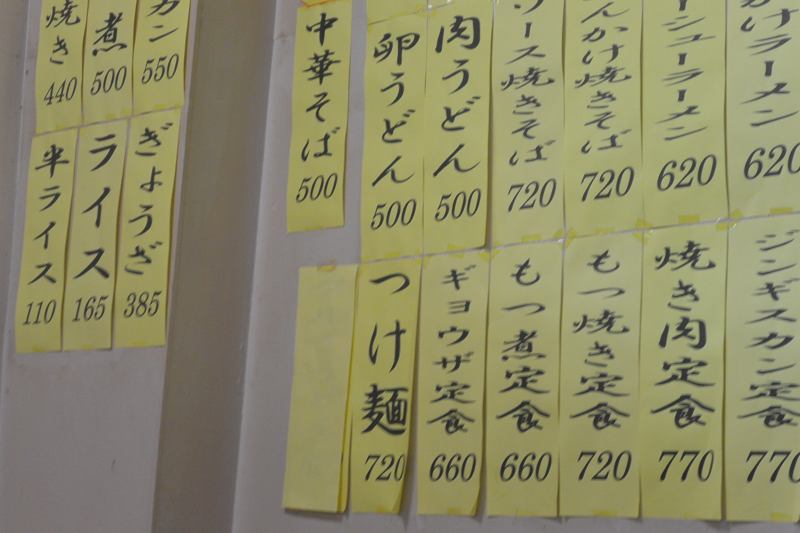 焼き
440
煮
500
カン
550
半ライス
110
ライス
165
ぎょうざ
385
中華そば
500
卵うどん
500
肉うどん
500
ソース焼きそば
720
んかけ焼きそば
720
ーシューラーメン
620
かけラーメン
620
つけ麺
720
ギョウザ定食
660
もつ煮定食
660
もつ焼き定食
720
焼き肉定食
770
ジンギスカン定食
770